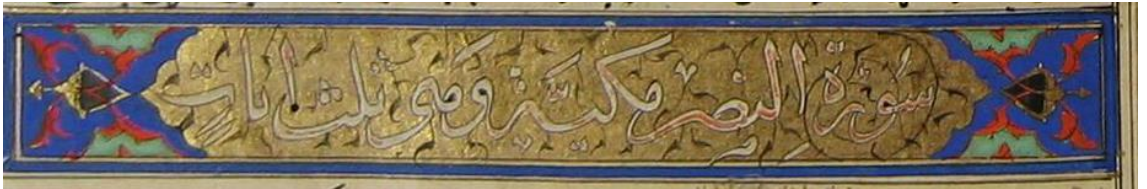 سورة النصر مكية وهي ثلث ايات